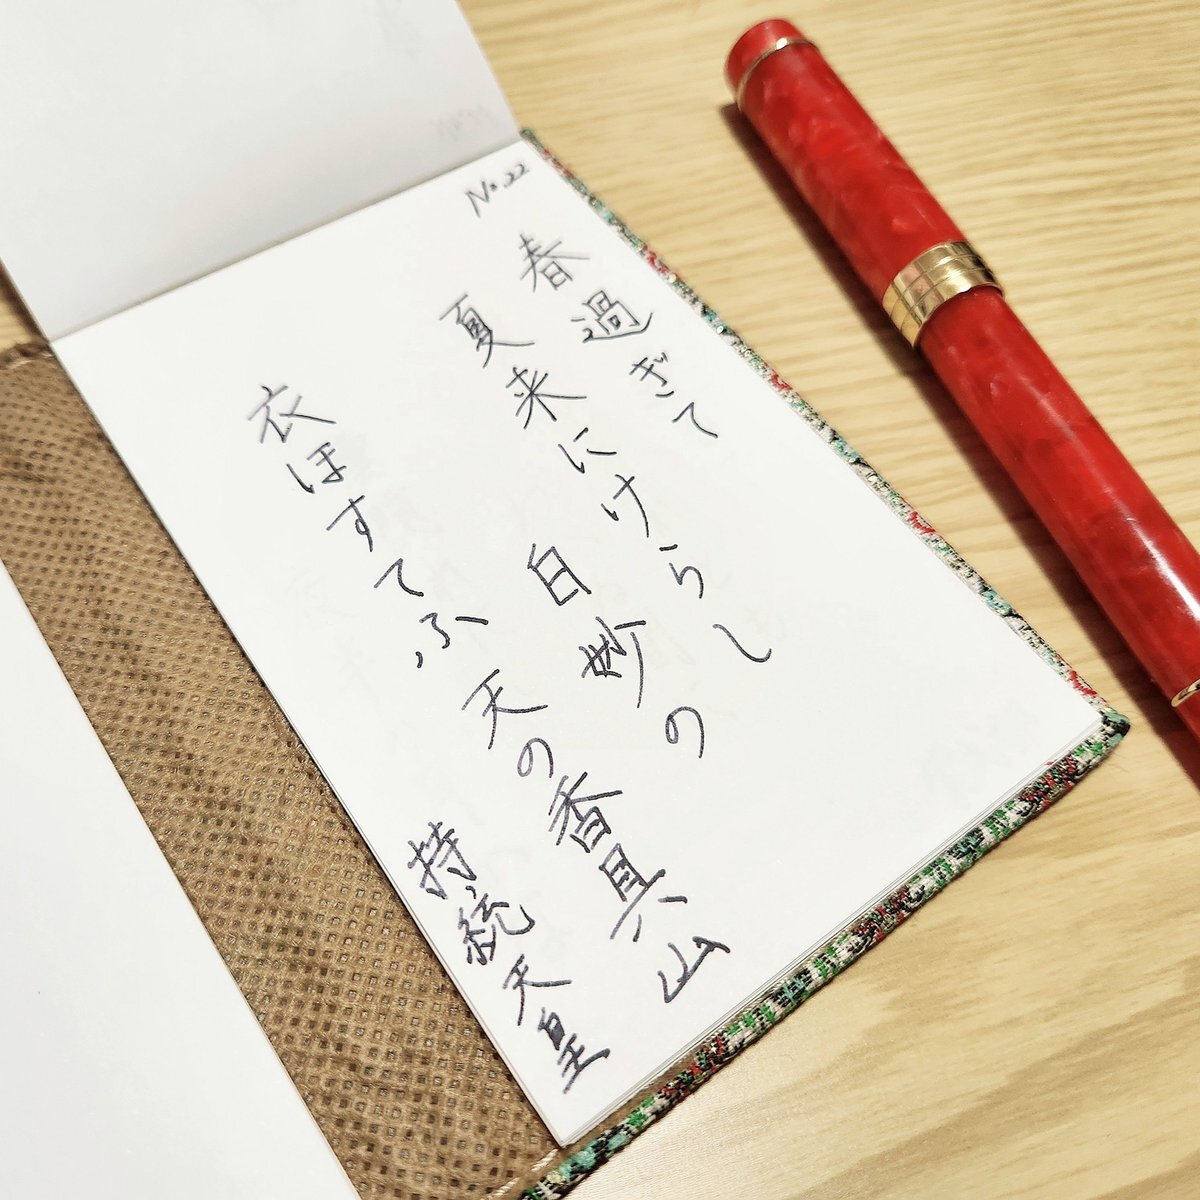 No.22
春過ぎて
夏来にけらし
白妙の
衣ほすてふ
天の香具山
持統天皇